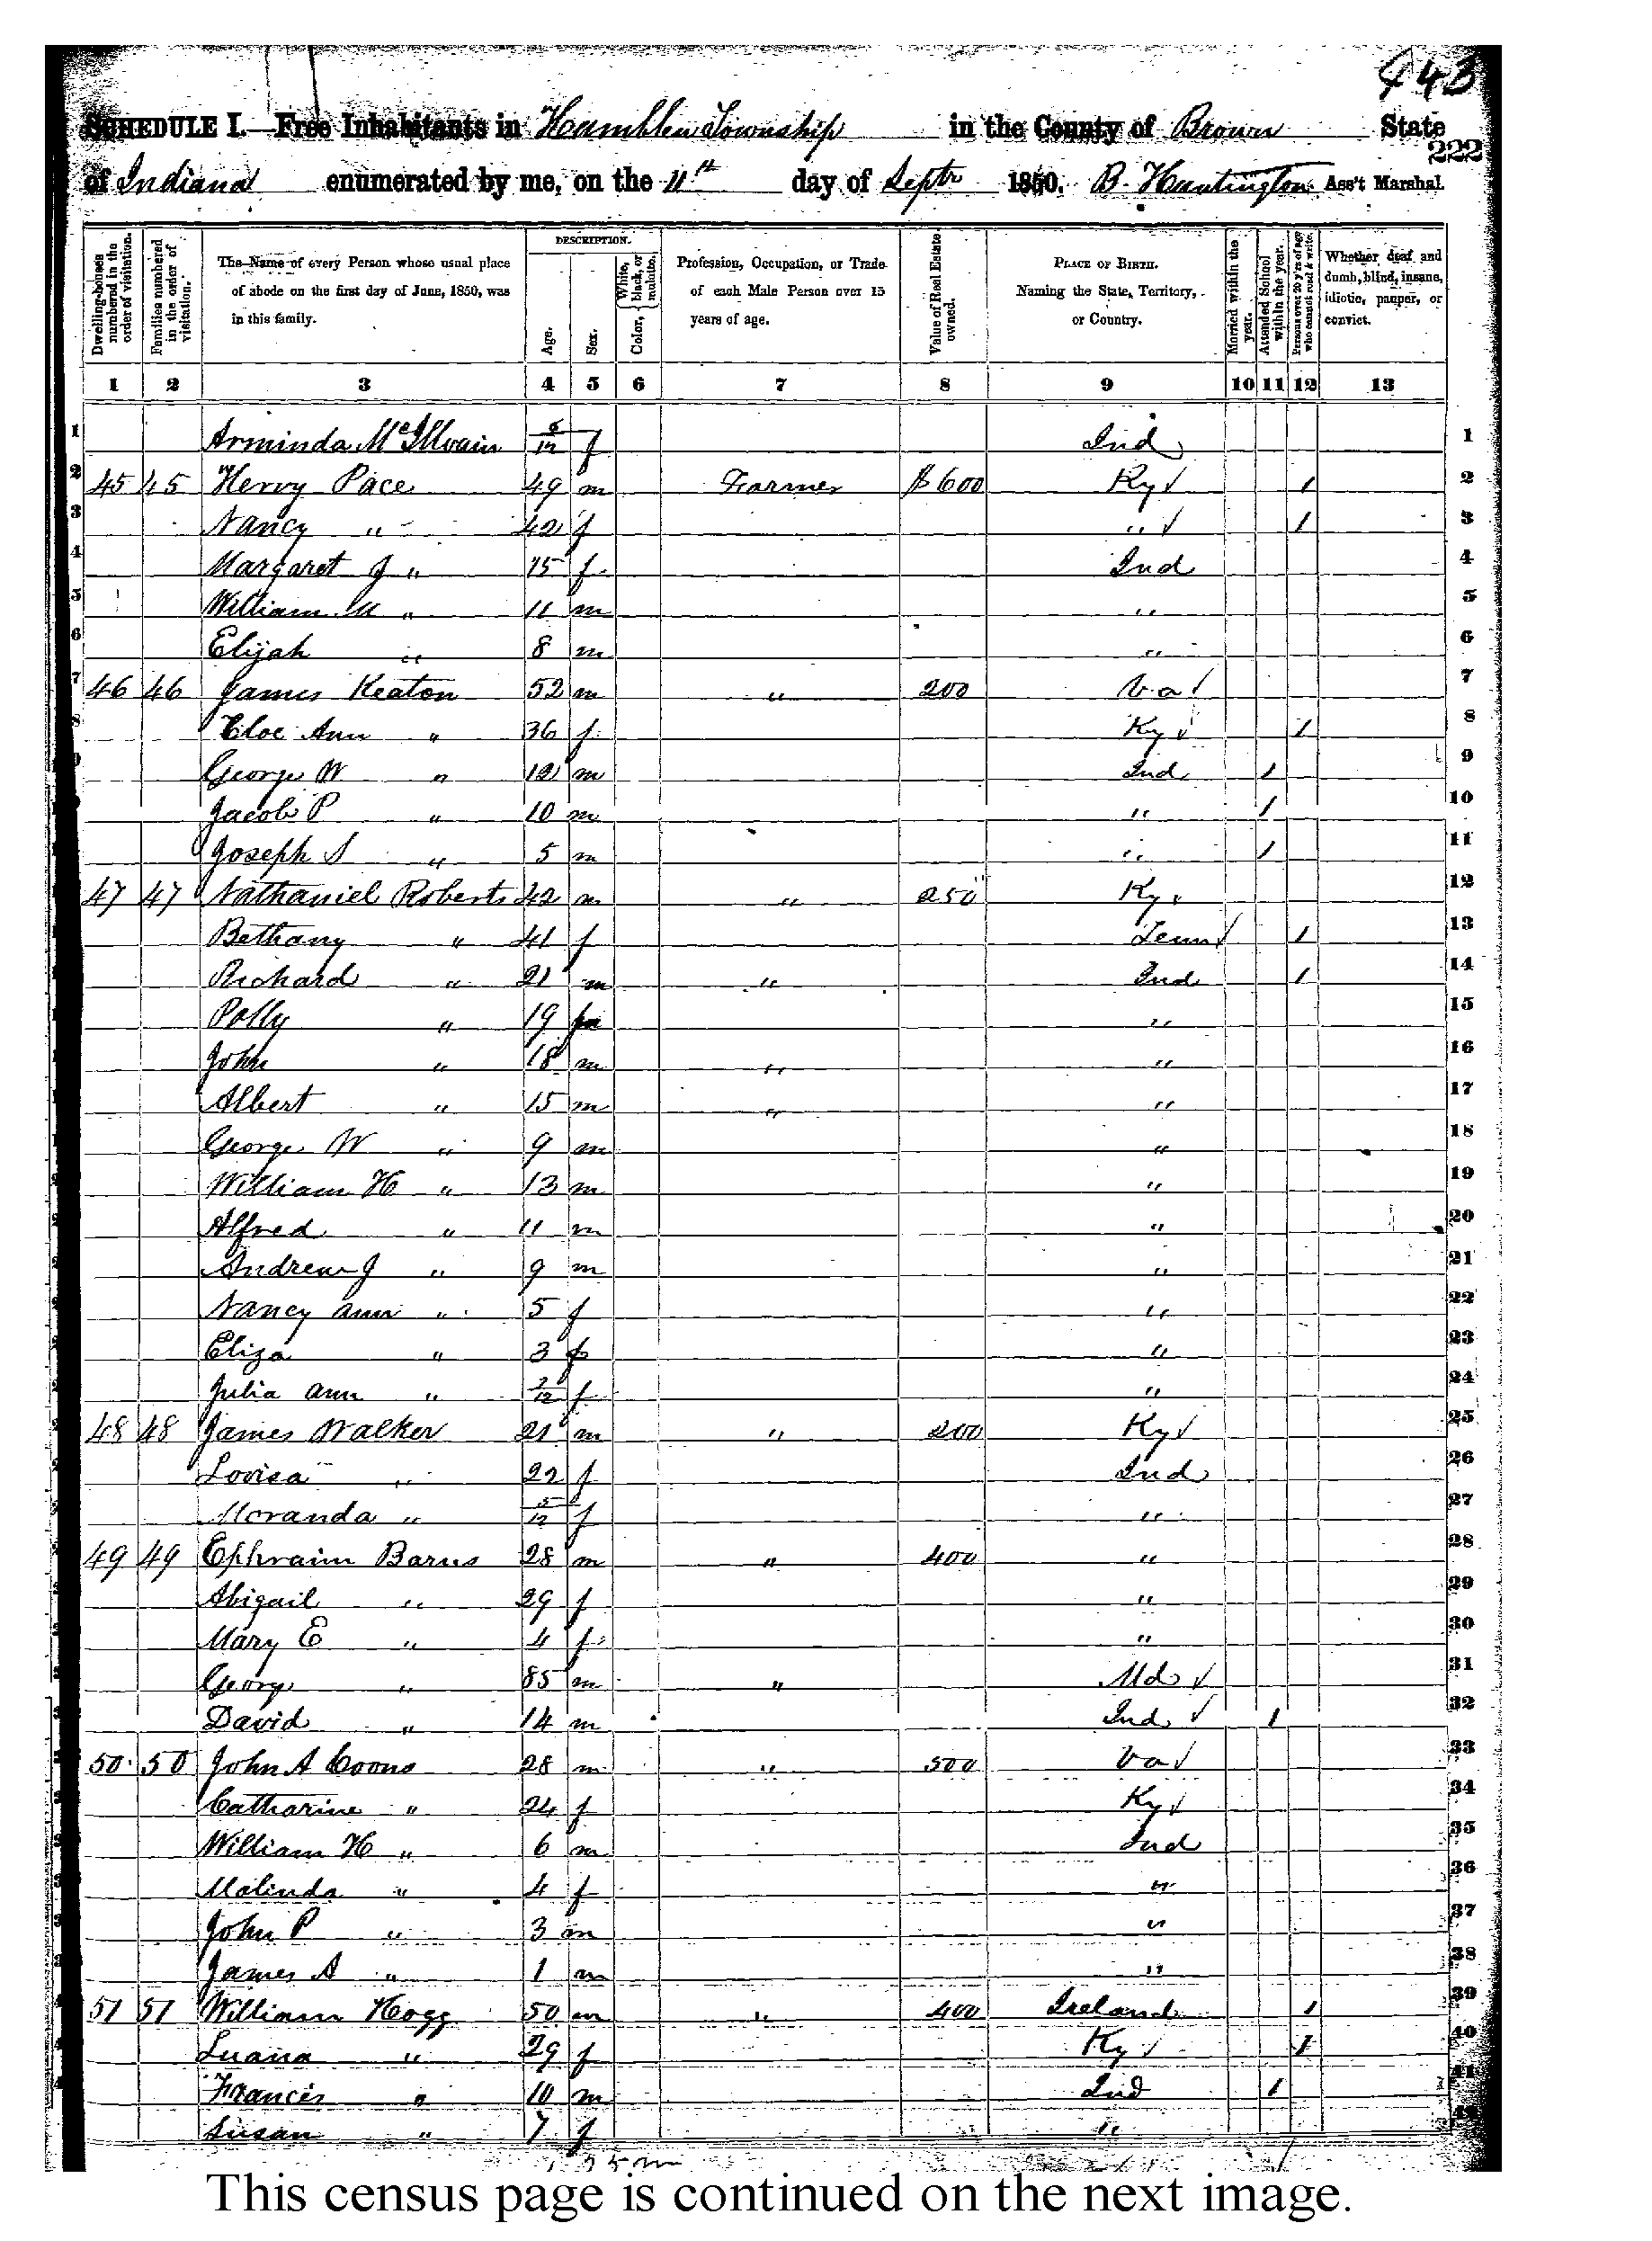 443
SCHEDULE I.—Free Inhabitants in Hamblen Township in the County of Brown State
222
of Indiana enumerated by me, on the 11th day of Septr 1850. B. Huntington Ass't Marshal.
Dwelling-houses numbered in the order of visitation.
Families numbered in the order of visitation.
The Name of every Person whose usual place of abode on the first day of June, 1850, was in this family.
DESCRIPTION.
Age.
Sex.
Color, White, black, or mulatto.
Profession, Occupation, or Trade of each Male Person over 15 years of age.
Value of Real Estate owned.
PLACE OF BIRTH. Naming the State, Territory, or Country.
Married within the year.
Attended School within the year.
Persons over 20 y'rs of age who cannot read & write.
Whether deaf and dumb, blind, insane, idiotic, pauper, or convict.
1 2 3 4 5 6 7 8 9 10 11 12 13
1 Arminda McIlvain /12 f Ind 1
2 45 45 Hervy Pace 49 m Farmer $600 Ky ✓ / 2
3 Nancy " 42 f " ✓ / 3
4 Margaret J " 15 f Ind 4
5 William M " 11 m " 5
6 Elijah " 8 m " 6
7 46 46 James Keaton 52 m " 200 Va ✓ 7
8 Cloe Ann " 36 f Ky ✓ / 8
9 George W " 12 m Ind / 9
Jacob P " 10 m " / 10
Joseph S " 5 m " / 11
47 47 Nathaniel Roberts 42 m " 250 Ky ✓ 12
Bethany " 41 f Tenn ✓ / 13
Richard " 21 m " Ind / 14
Polly " 19 f " 15
John " 18 m " " 16
Albert " 15 m " " 17
George W " 9 m " 18
William H " 13 m " 19
Alfred " 11 m " 20
Andrew J " 9 m " 21
Nancy Ann " 5 f " 22
Eliza " 3 f " 23
Julia Ann " /12 f " 24
48 48 James Walker 21 m " 200 Ky ✓ 25
Lovisa " 22 f Ind 26
Moranda " /12 f " 27
49 49 Ephraim Barns 28 m " 400 " 28
Abigail " 29 f " 29
Mary E " 4 f " 30
George " 85 m " Md ✓ 31
David " 14 m Ind ✓ / 32
50 50 John A Coons 28 m " 500 Va ✓ 33
Catharine " 24 f Ky ✓ 34
William H " 6 m Ind 35
Malinda " 4 f " 36
John P " 3 m " 37
James A " 1 m " 38
51 51 William Hogg 50 m " 400 Ireland / 39
Luana " 29 f Ky ✓ / 40
Francis " 10 m Ind / 41
Susan " 7 f " 42
This census page is continued on the next image.